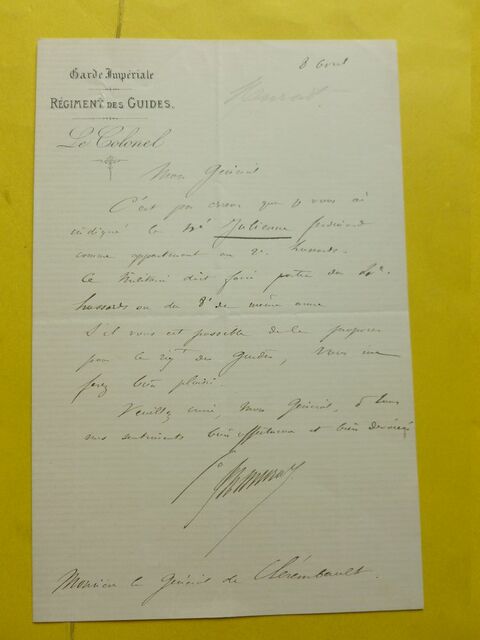 8 avril
Garde Impériale
RÉGIMENT DES GUIDES.
Le Colonel
Mon Général
C'est par erreur que je vous ai
indiqué le Mis Julienne ferdinand
comme appartenant au 2e hussards.
Ce Militaire doit faire partie du
hussards ou du 8e de même arme
S'il vous est possible de le proposer
pour le régt des Guides, vous me
ferez bien plaisir.
Veuillez croire, Mon Général, à tous
mes sentiments bien affectueux et bien dévoués
Monsieur le Général de Clérembault.